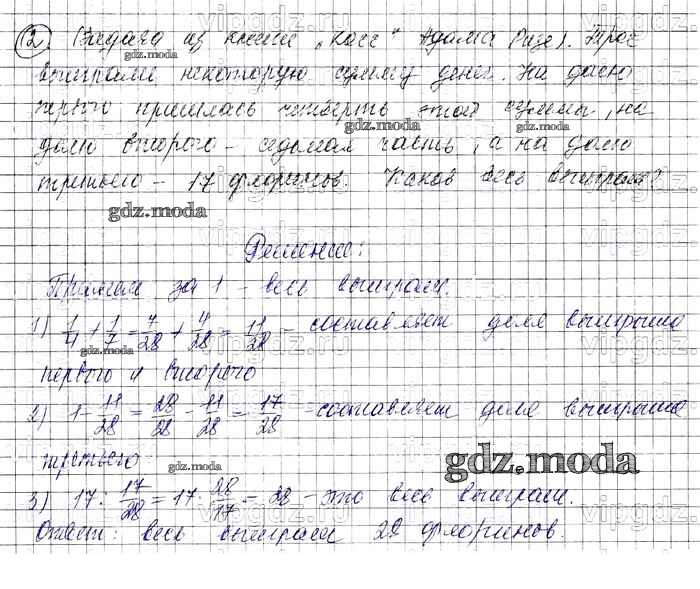 12 (Задача из книги „Косс" Адама Ризе). Трое
выиграли некоторую сумму денег. На долю
первого пришлась четверть этой суммы, на
долю второго - седьмая часть, а на долю
третьего - 17 флоринов. Каков весь выигрыш?
Решение:
Примем за 1 - весь выигрыш.
1) 1/4 + 1/7 = 7/28 + 4/28 = 11/28 - составляет доля выигрыша
первого и второго
2) 1 - 11/28 = 28/28 - 11/28 = 17/28 - составляет доля выигрыша
третьего
3) 17 : 17/28 = 17 · 28/17 = 28 - это весь выигрыш.
Ответ: весь выигрыш 28 флоринов.
gdz.moda
gdz.moda
gdz.moda
gdz.moda
gdz.moda
gdz.moda
vipgdz.ru